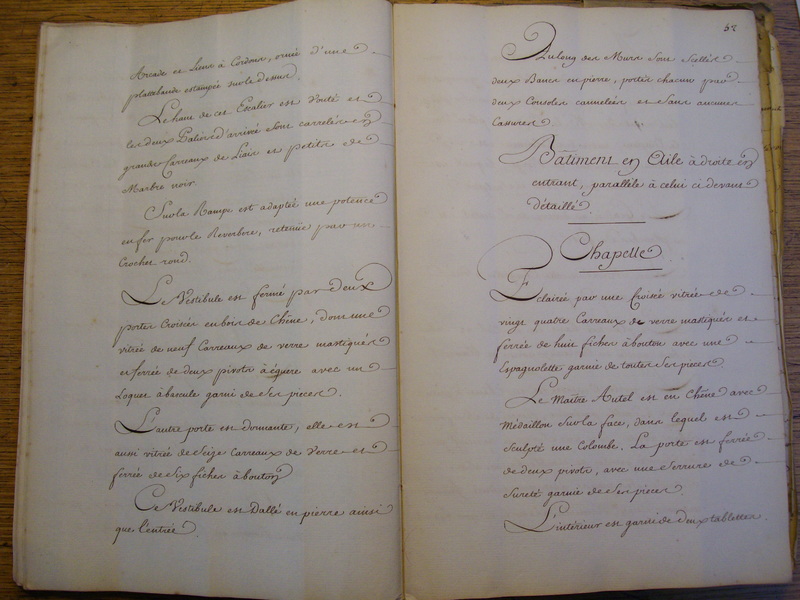 Arcade et Liene à Cordons, ornée d'une
plattebande estampée sur le dessus.
Le haut de cet Escalier est Vouté et
les deux Paliers d'arrivé sont carrelés en
grands Carreaux de Liais et petits de
Marbre noir.
Sur la Rampe est adapté une potence
en fer pour le Reverbere, retenüe par un
Crochet rond.
Le Vestibule est fermé par deux
portes Croisées en bois de Chêne, dont une
vitrée de neuf Carreaux de verre mastiqués
et ferrée de deux pivots à équere avec un
Loquet à bascule garni de ses pieces.
L'autre porte est dormante, elle est
aussi vitrée de Seize Carreaux de Verre et
ferrée de Six fiches à bouton
Ce Vestibule est Dallé en pierre ainsi
que l'entrée
52
Au long des Murs sont Scellés
deux Bancs en pierre, portés chacun par
deux Consoles cannelées et sans aucunes
Cassures.
Bâtiment en Aile à droite en
entrant, parallèle à celui ci devant
détaillé
Chapelle
Eclairée par une Croisée vitrée de
vingt quatre Carreaux de verre mastiqués et
ferrée de huit fiches à bouton avec une
Espagnolette garnie de toutes ses pieces.
Le Maître Autel est en Chêne avec
Médaillon sur la face, dans lequel est
sculpté une Colombe. La porte est ferrée
de deux pivots, avec une Serrure de
Sureté garnie de ses pieces.
L'intérieur est garni de deux tablettes.